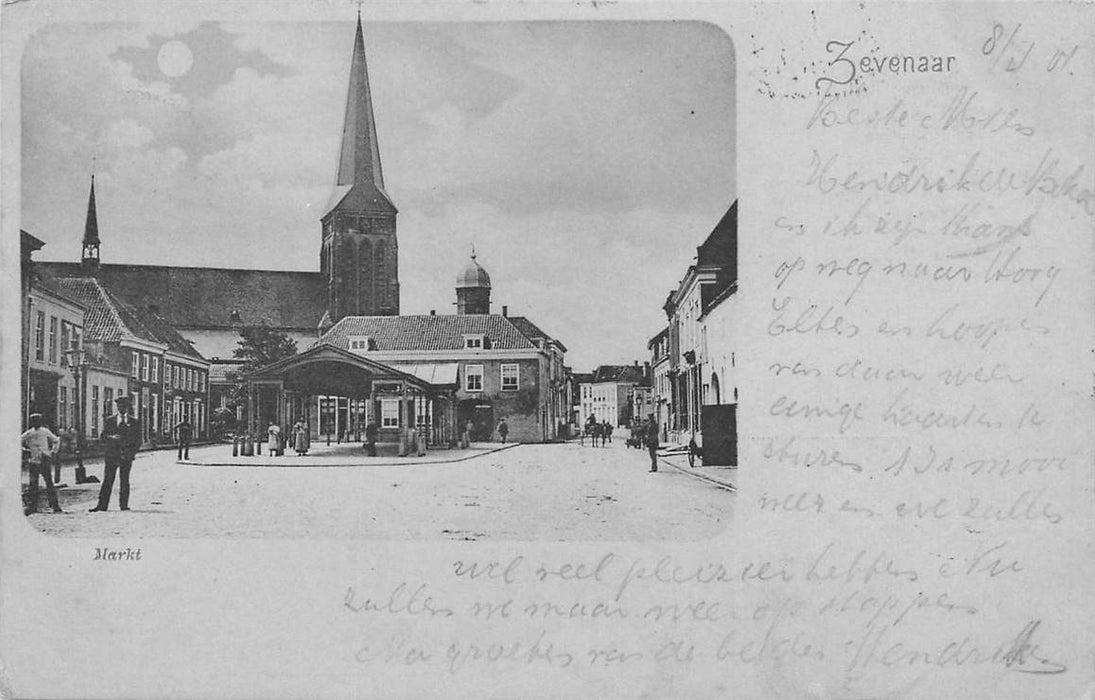 Zevenaar
8/ 01.
Beste
Hendrik de
en ik zijn thans
op weg naar Hoog
Elten en hoopen
van daar weer
eenige kaarten te
sturen. 't Is mooi
weer en we zullen
wel veel pleizier hebben. Nu
zullen we maar weer op stappen
Na groeten van de beiden Hendrik
Markt